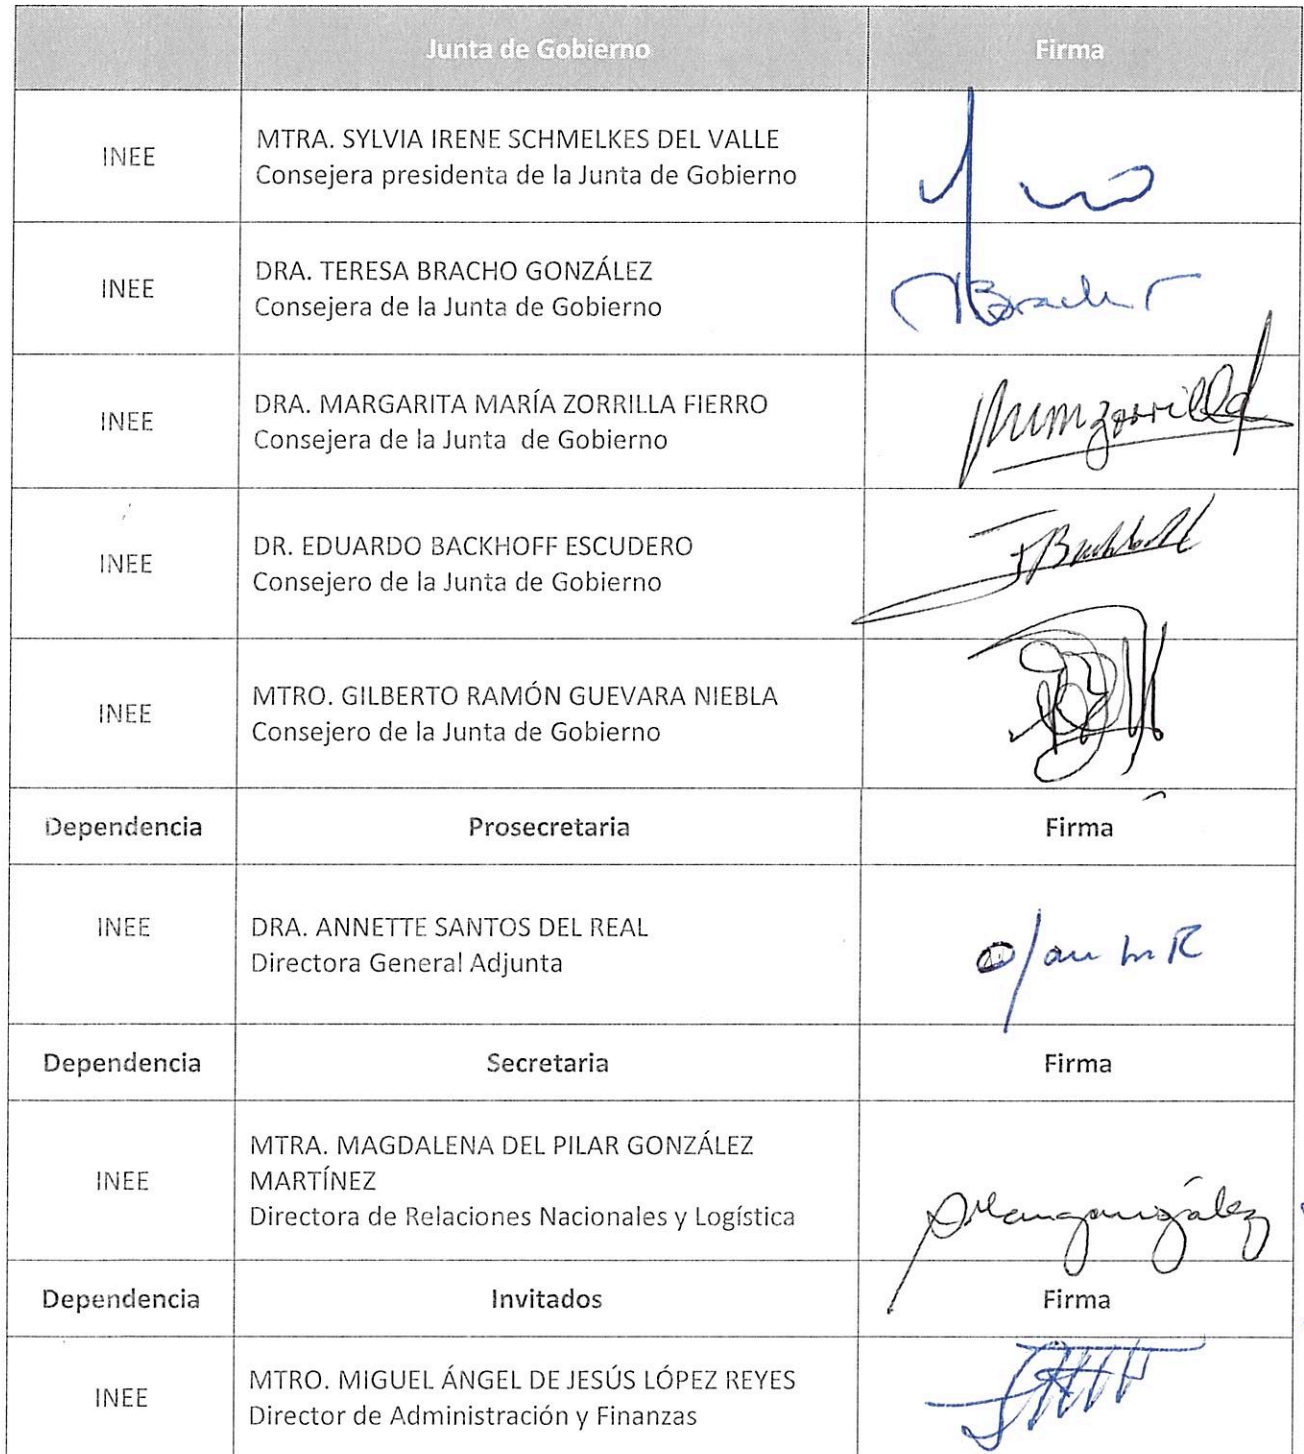 Junta de Gobierno Firma
INEE MTRA. SYLVIA IRENE SCHMELKES DEL VALLE
Consejera presidenta de la Junta de Gobierno
INEE DRA. TERESA BRACHO GONZÁLEZ
Consejera de la Junta de Gobierno
INEE DRA. MARGARITA MARÍA ZORRILLA FIERRO
Consejera de la Junta de Gobierno
mmzorrilla
INEE DR. EDUARDO BACKHOFF ESCUDERO
Consejero de la Junta de Gobierno
INEE MTRO. GILBERTO RAMÓN GUEVARA NIEBLA
Consejero de la Junta de Gobierno
Dependencia Prosecretaria Firma
INEE DRA. ANNETTE SANTOS DEL REAL
Directora General Adjunta
Dependencia Secretaria Firma
INEE MTRA. MAGDALENA DEL PILAR GONZÁLEZ
MARTÍNEZ
Directora de Relaciones Nacionales y Logística
Dependencia Invitados Firma
INEE MTRO. MIGUEL ÁNGEL DE JESÚS LÓPEZ REYES
Director de Administración y Finanzas